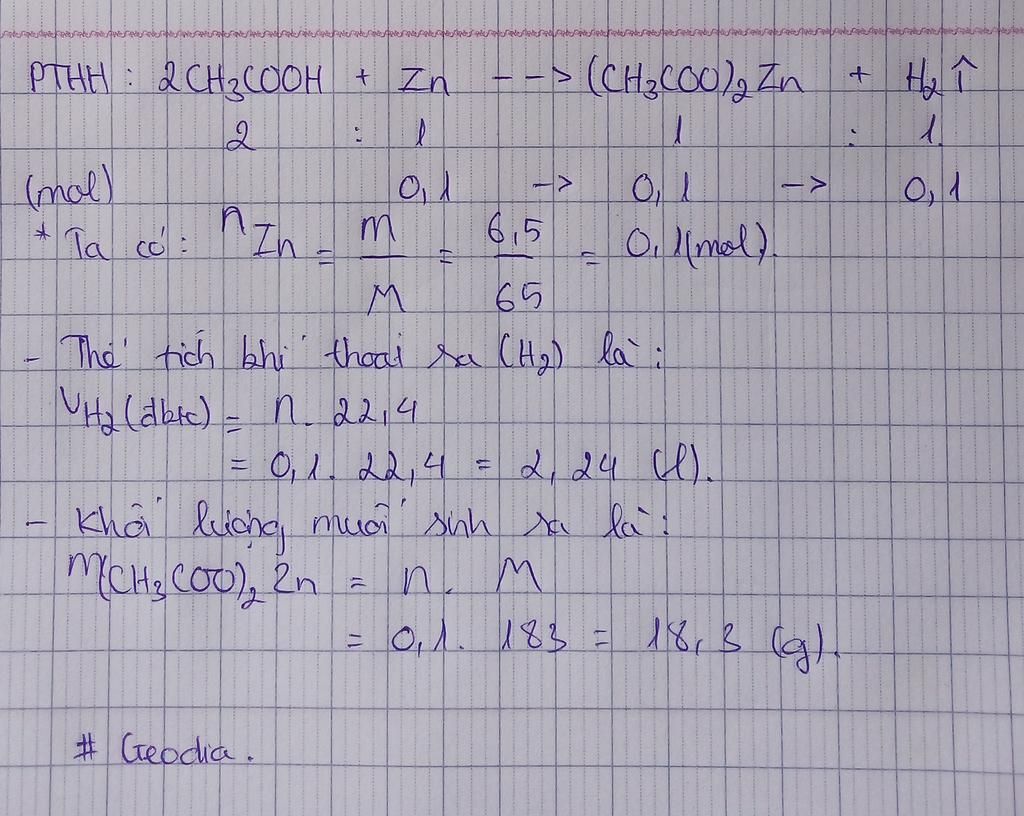 PTHH : 2CH3COOH + Zn --> (CH3COO)2Zn + H2↑
2 : 1 1 : 1
(mol) 0,1 -> 0,1 -> 0,1
* Ta có : nZn = m/M = 6,5/65 = 0,1(mol).
- Thể tích khí thoát ra (H2) là :
VH2(đktc) = n. 22,4
= 0,1. 22,4 = 2,24 (l).
- Khối lượng muối sinh ra là :
m(CH3COO)2Zn = n. M
= 0,1. 183 = 18,3 (g).
# Geodia.